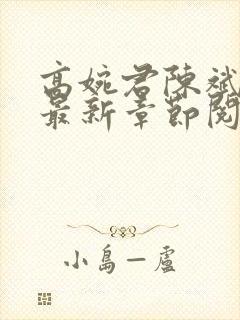 高婉君陳斌
最新章節閱
小島一盧